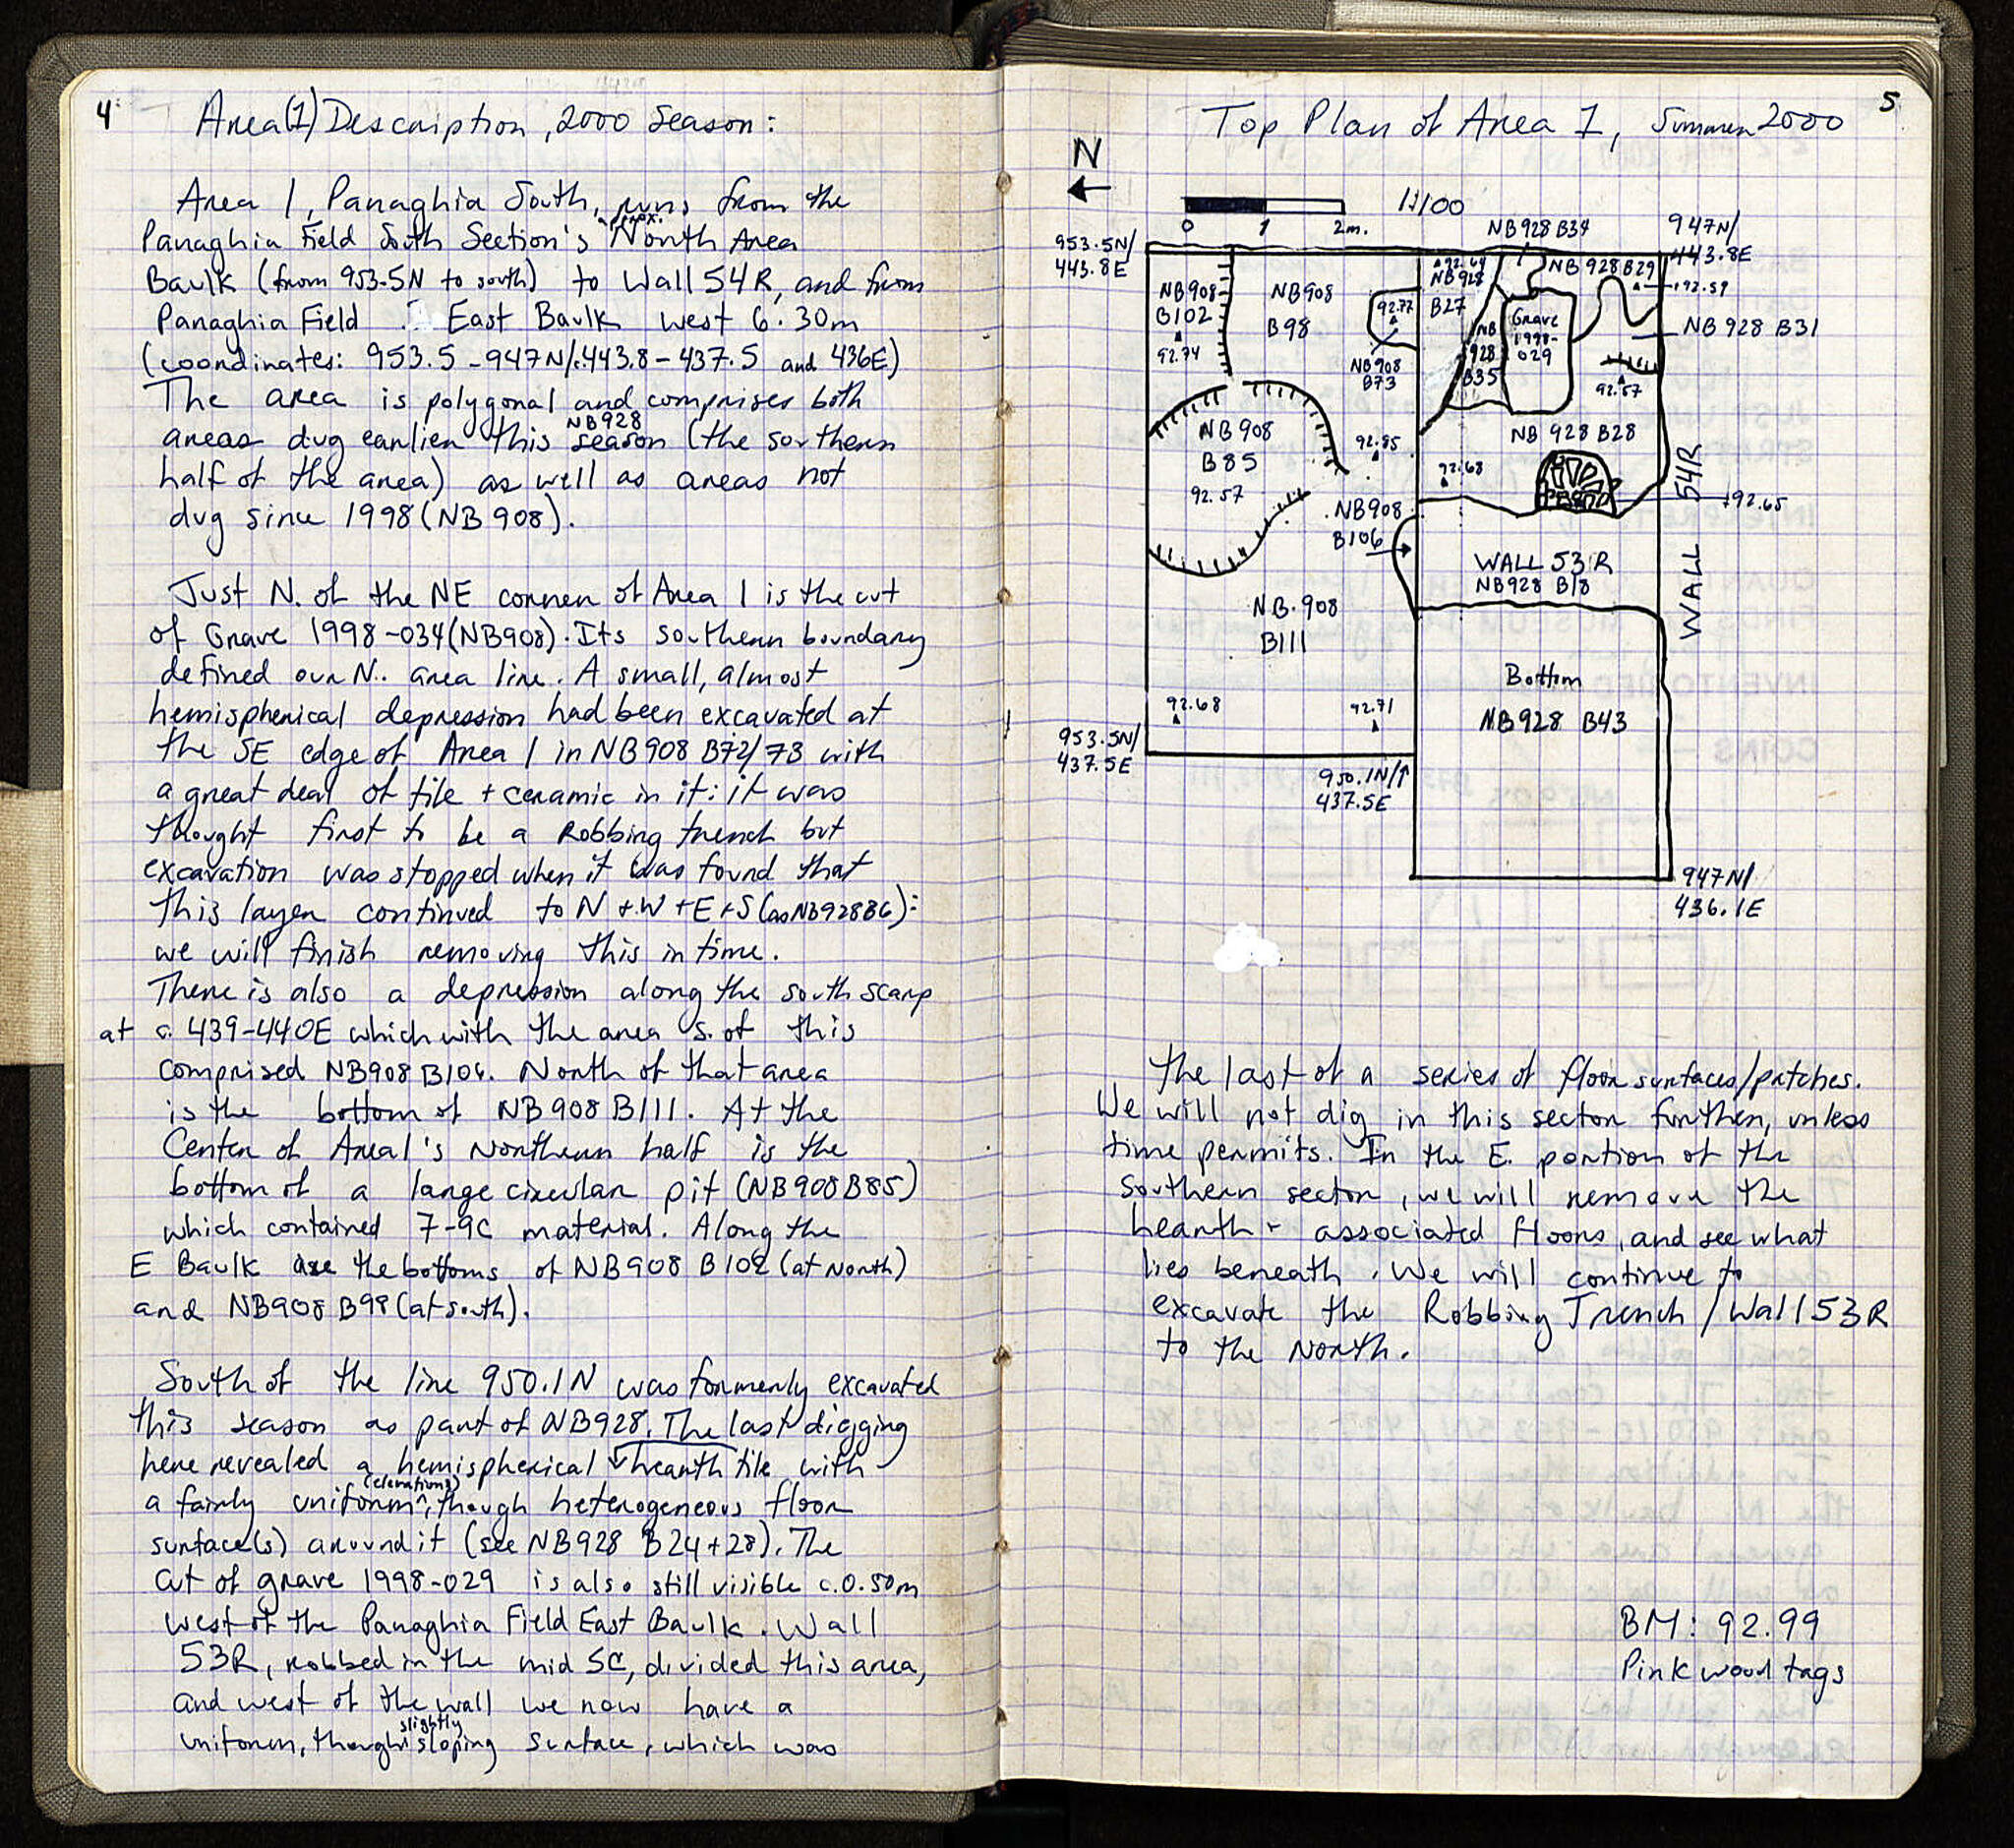 4
Area (1) Description, 2000 Season:
Area 1, Panaghia South, runs from the
Panaghia Field South Section's approx. North Area
Baulk (from 953.5N to south) to Wall 54R, and from
Panaghia Field East Baulk west 6.30m
(coordinates: 953.5-947N/c.443.8-437.5 and 436E)
The area is polygonal and comprises both
areas dug earlier this NB928 season (the southern
half of the area) as well as areas not
dug since 1998 (NB 908).
Just N. of the NE corner of Area 1 is the cut
of Grave 1998-034 (NB908). Its southern boundary
defined our N. area line. A small, almost
hemispherical depression had been excavated at
the SE edge of Area 1 in NB908 B72/73 with
a great deal of tile + ceramic in it: it was
thought first to be a Robbing trench but
excavation was stopped when it was found that
this layer continued to N + W + E + S (as NB928B6):
we will finish removing this in time.
There is also a depression along the south scarp
at c. 439-440E which with the area S. of this
comprised NB908 B106. North of that area
is the bottom of NB908 B111. At the
Center of Area 1's Northern half is the
bottom of a large circular pit (NB908B85)
which contained 7-9C material. Along the
E Baulk are the bottoms of NB908 B102 (at North)
and NB908 B98 (at south).
South of the line 950.1N was formerly excavated
this season as part of NB928. The last digging
here revealed a hemispherical hearth tile with
a fairly uniform (elevations), though heterogeneous floor
surface(s) around it (see NB928 B24+28). The
cut of grave 1998-029 is also still visible c.0.50m
west of the Panaghia Field East Baulk. Wall
53R, robbed in the mid 5C, divided this area,
and west of the wall we now have a
uniform, though slightly sloping surface, which was
5
Top Plan of Area 1, Summer 2000
N
1:100
0 1 2m.
953.5N/
443.8E
NB928 B34
947N/
443.8E
NB908
B102
92.74
NB908
B98
92.77
NB908
B73
NB928
B27
NB
928
B35
Grave
1998-
029
NB 928 B29
92.59
NB 928 B31
92.57
NB 908
B85
92.57
92.85
NB 928 B28
92.68
92.65
NB908
B106
WALL 53R
NB928 B18
WALL 54R
NB 908
B111
Bottom
NB928 B43
92.68
92.71
953.5N/
437.5E
950.1N/
437.5E
947N/
436.1E
the last of a series of floor surfaces/patches.
We will not dig in this sector further, unless
time permits. In the E. portion of the
southern sector, we will remove the
hearth + associated floors, and see what
lies beneath. We will continue to
excavate the Robbing Trench / Wall 53R
to the North.
BM: 92.99
Pink wood tags